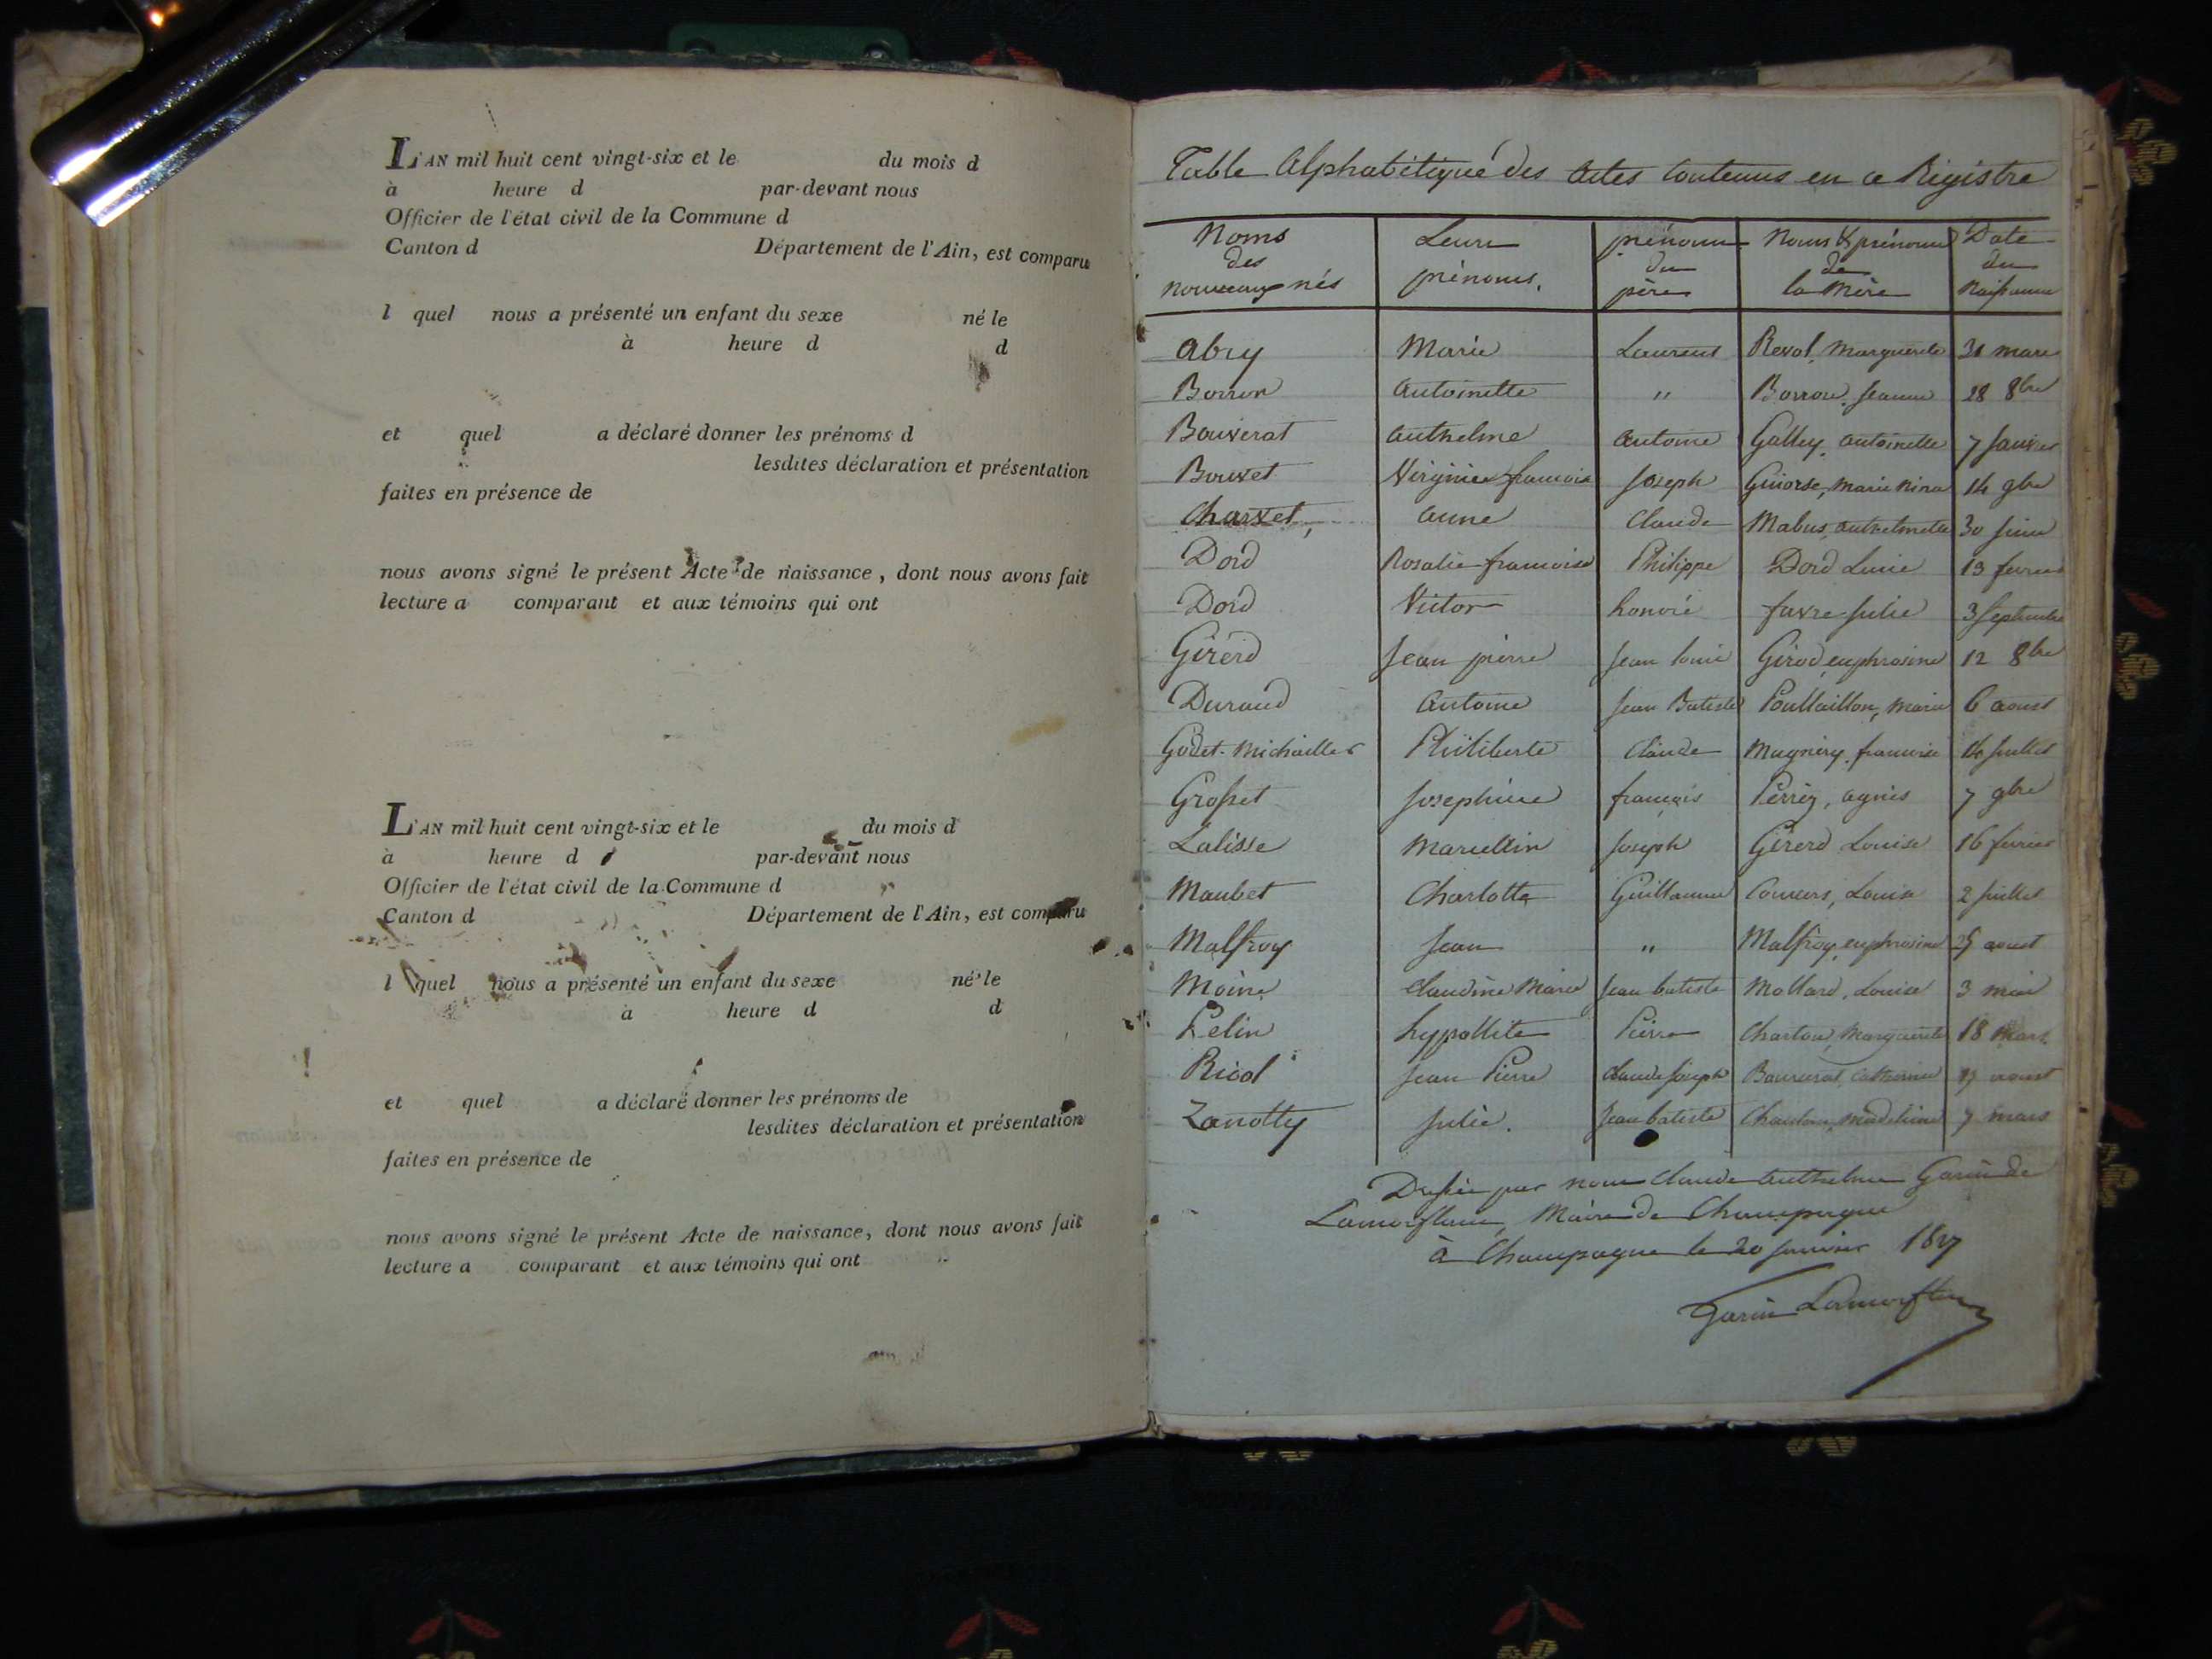 L'AN mil huit cent vingt-six et le du mois d
à heure d par-devant nous
Officier de l'état civil de la Commune d
Canton d Département de l'Ain, est comparu
l quel nous a présenté un enfant du sexe né le
à heure d d
et quel a déclaré donner les prénoms d
lesdites déclaration et présentation
faites en présence de
nous avons signé le présent Acte de naissance, dont nous avons fait
lecture a comparant et aux témoins qui ont
L'AN mil huit cent vingt-six et le du mois d
à heure d par-devant nous
Officier de l'état civil de la Commune d
Canton d Département de l'Ain, est comparu
l quel nous a présenté un enfant du sexe né le
à heure d d
et quel a déclaré donner les prénoms de
lesdites déclaration et présentation
faites en présence de
nous avons signé le présent Acte de naissance, dont nous avons fait
lecture a comparant et aux témoins qui ont
Table Alphabétique des Actes Contenus en ce Régistre
Noms des nouveaux nés | Leurs prénoms. | prénoms du père | Noms & prénoms de la Mère | Date du Naissance
Abry Marie Laurent Revol, Marguerite 31 mars
Borron Antoinette " Borron, Jeanne 28 8bre
Bouverat Anthelme Antoine Galley, Antoinette 7 Janvier
Bouvet Virginie francoise Joseph Guiorse, Marie Nina 14 9bre
Charvet, Anne Claude Mabus, Anthelmette 30 Juin
Dord Rosalie francoise Philippe Dord Lucie 13 fevrier
Dord Victor honoré favre Julie 3 Septembre
Girerd Jean pierre Jean louis Girod, euphrosine 12 8bre
Durand Antoine Jean Batiste Poullaillon, Marie 6 aoust
Godet-Michaille Philiberte Claude Magnery, francoise 14 Juillet
Grosset Josephine françois Perrin, agnès 7 9bre
Lalisse Marcellin Joseph Girerd Louise 16 fevrier
Maubet Charlotte Guillaume Louise 2 Juillet
Malfroy Jean " Malfroy, euphrosine 25 aoust
Moine Claudine Marie Jean batiste Mollard, Louise 3 mai
Pelin hypollite Pierre Marguerite 18 Mars
Ricol Jean Pierre Claude Joseph Bouverat, Catherine aoust
Zanotty Julie. Jean batiste Madelaine 7 mars
Dressée par nous Claude Anthelme Garin de
Lamorflanc, Maire de Champagne
à Champagne le 20 Janvier 1827
Garin Lamorflan